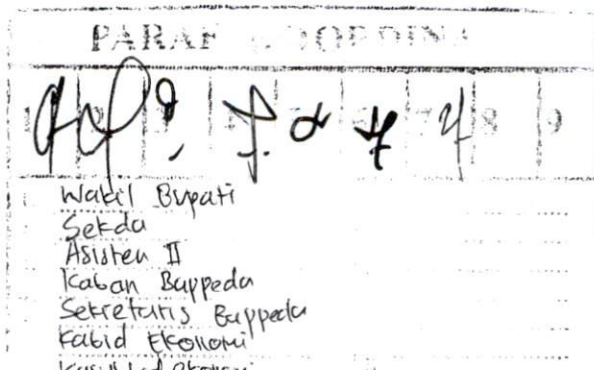 PARAF KOORDINASI
Wakil Bupati
Sekda
Asisten II
Kaban Bappeda
Sekretaris Bappeda
Kabid Ekonomi